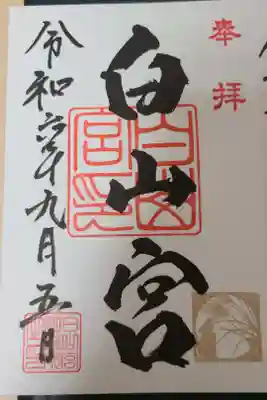 奉拝
白山宮
令和六年九月五日